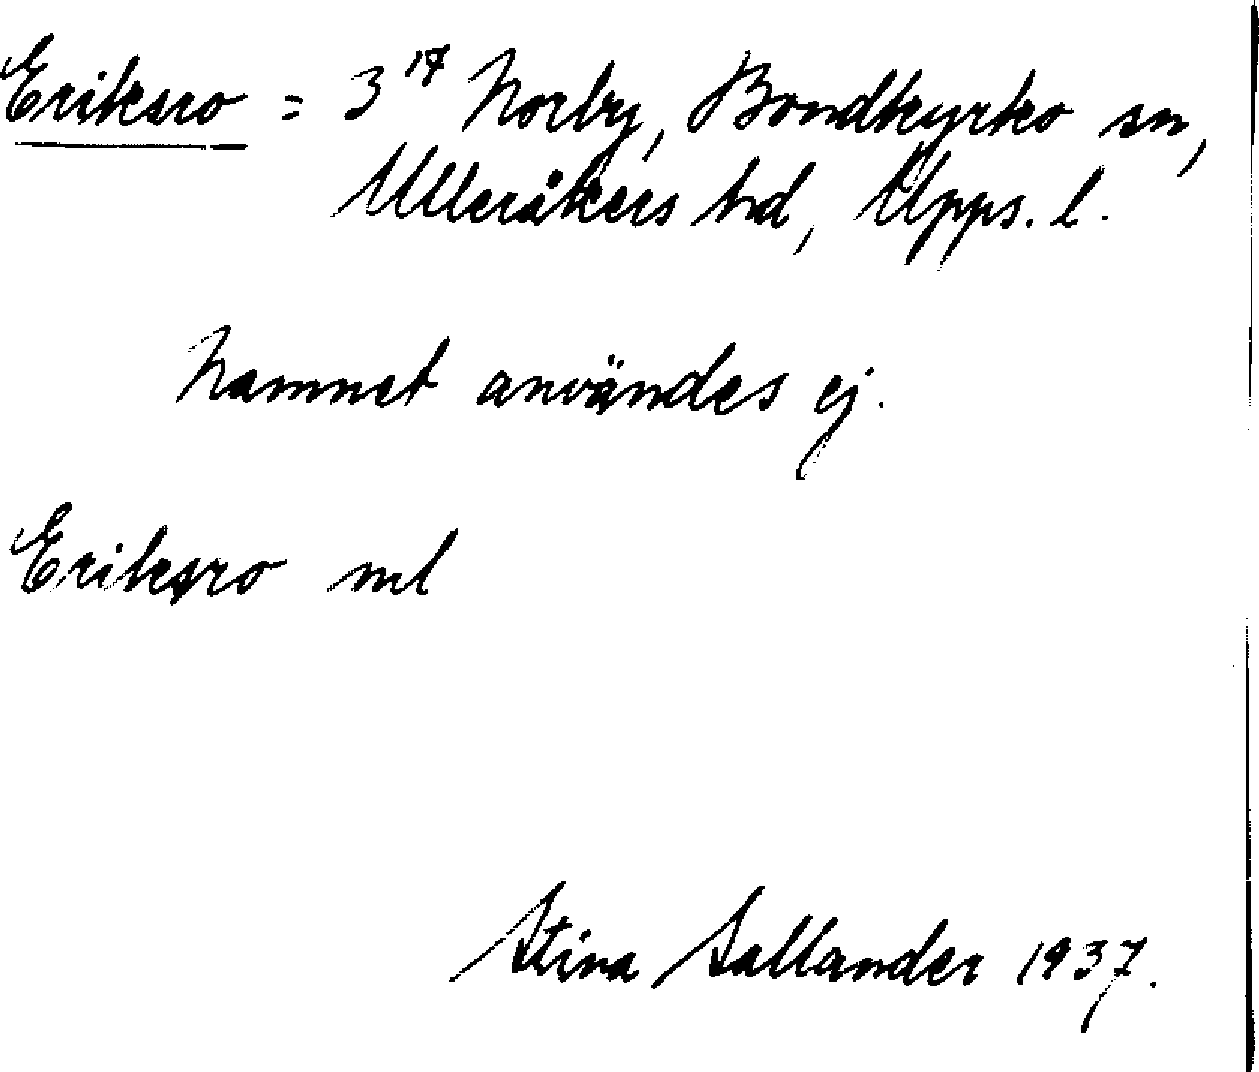 Eriksro = 3¹⁷ Norby, Bondkyrko sn,
Ulleråkers hd, Upps. l.
Namnet användes ej.
Eriksro ml
Stina Sallander 1937.